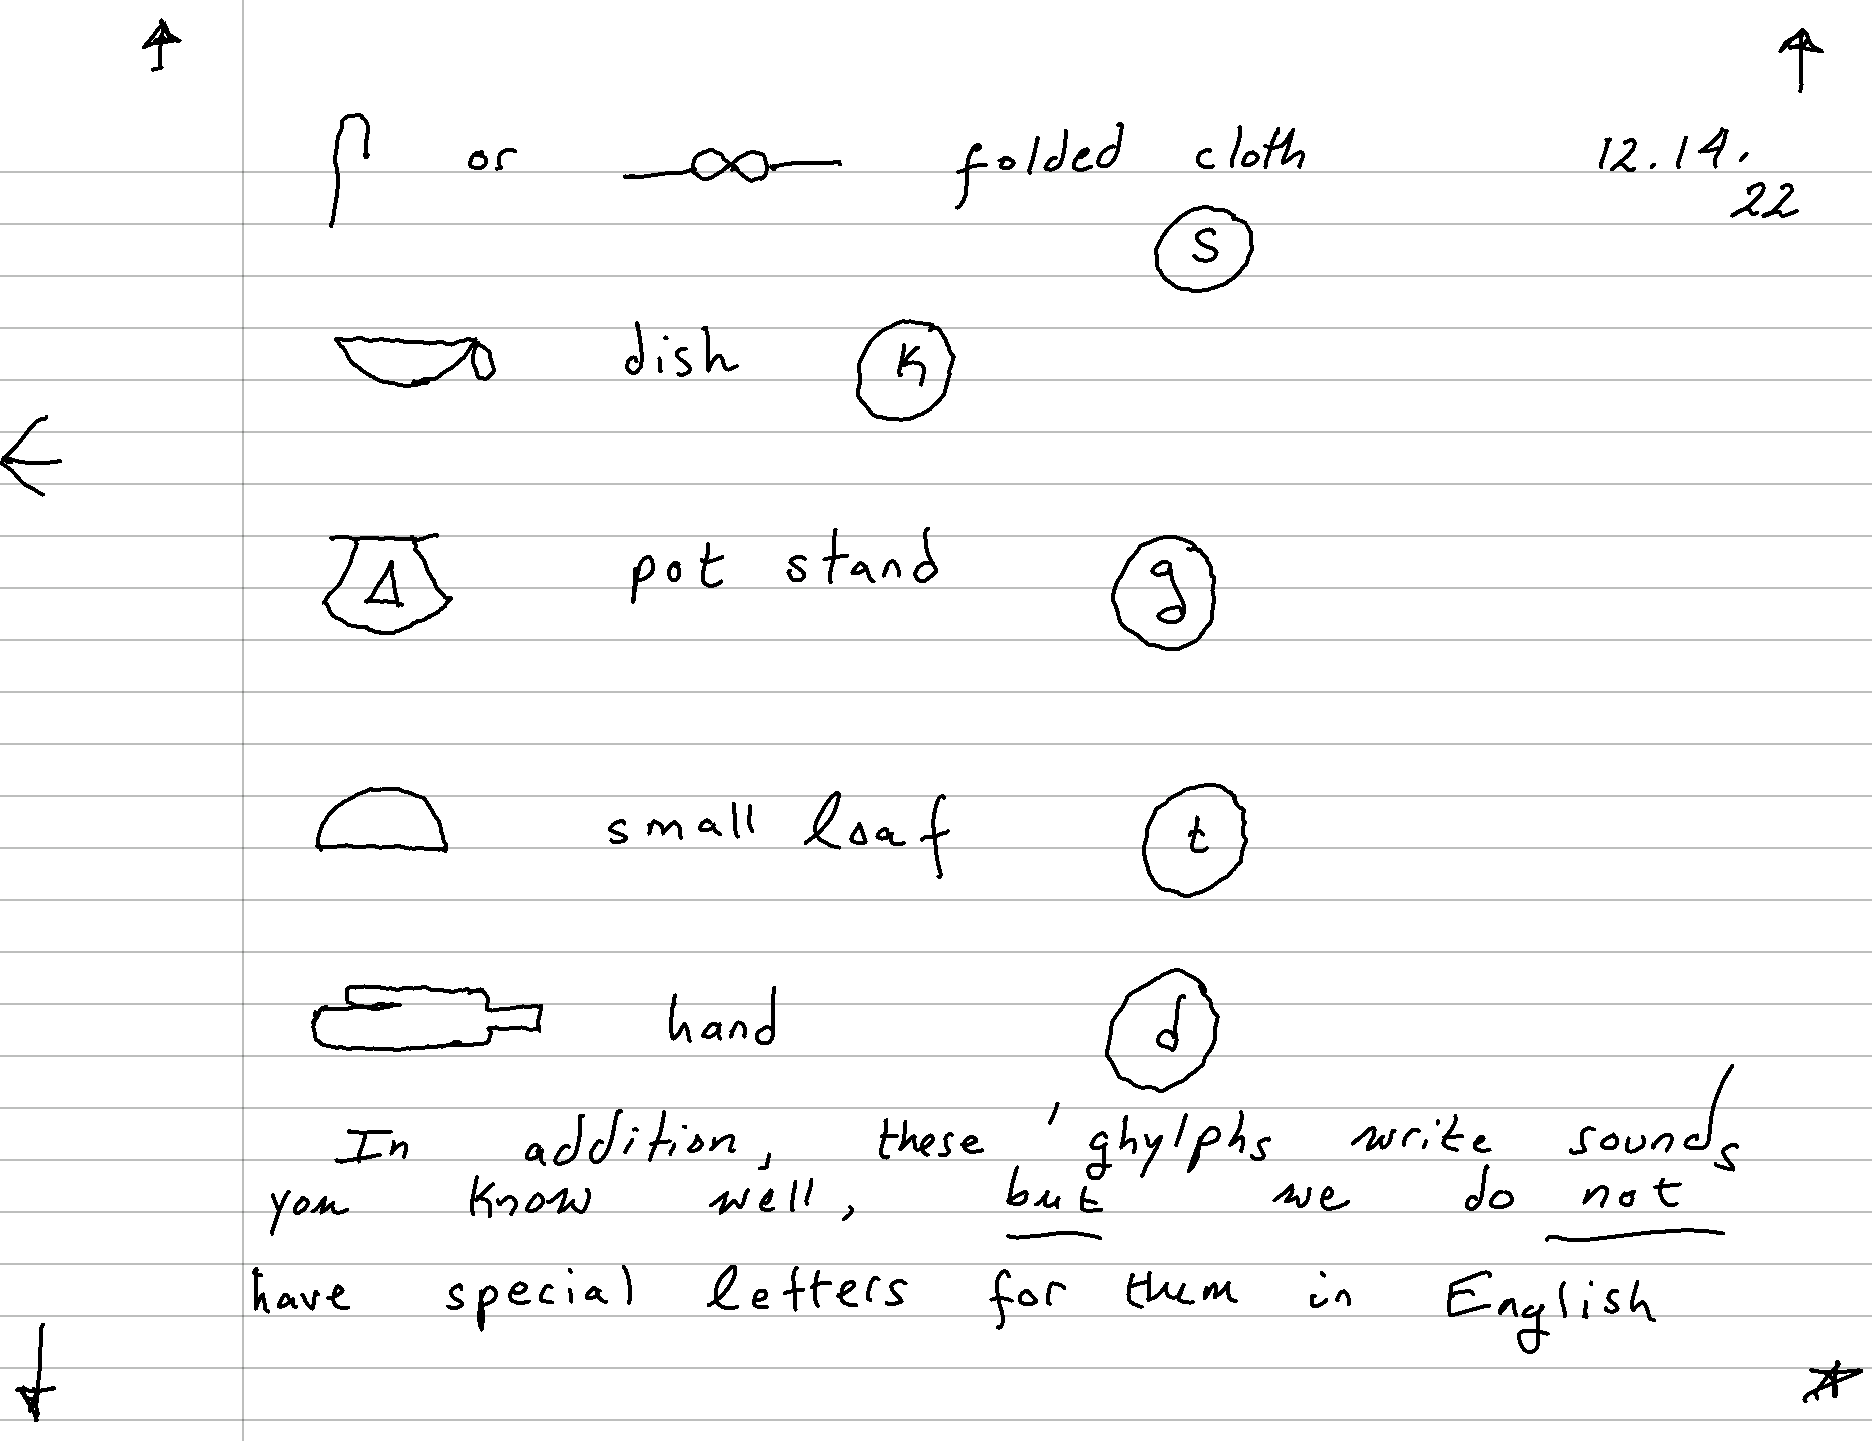 or folded cloth 12.14.
22
s
dish k
pot stand g
small loaf t
hand d
In addition, these 'ghylphs write sounds
you know well, but we do not
have special letters for them in English